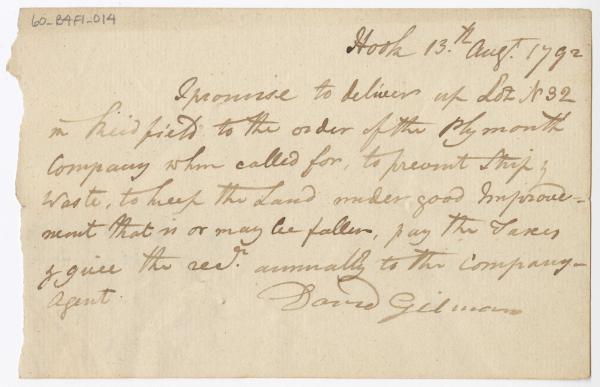 60-B4F1-014
Hook 13.th Augt. 1792
I promise to deliver up Lot N 32
in Readfield to the order of the Plymouth
Company when called for, to prevent Strip &
Waste, to keep the Land under good Improve-
ment that is or may be fallen, pay the Taxes
& give the rect. annually to the Company-
Agent.
David Gilman